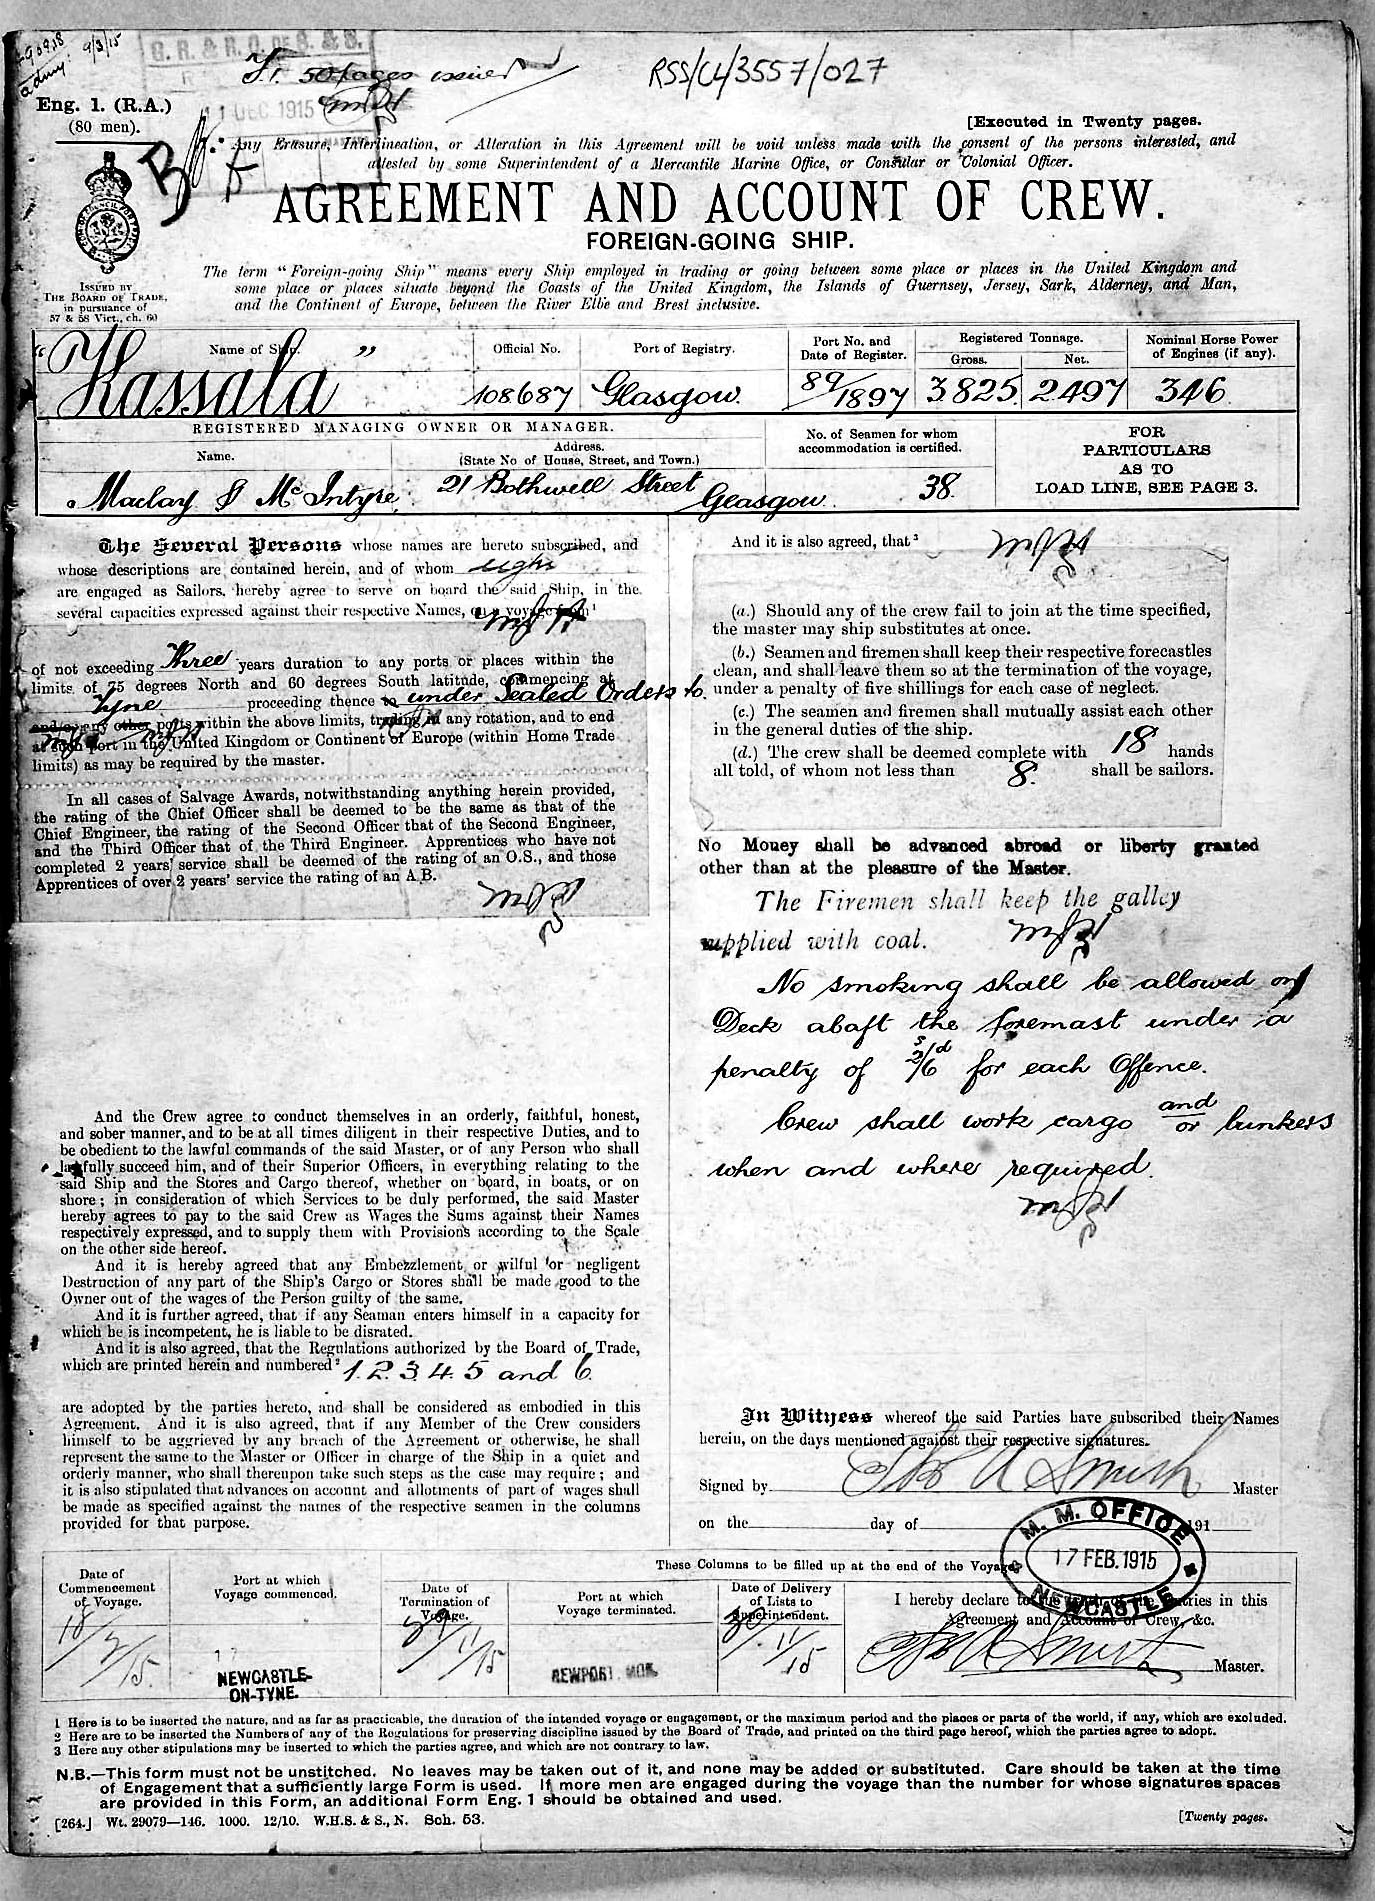 9/3/15
F.1. 50 pages issued
RSS/CL/3557/027
11 DEC 1915
Eng. 1. (R.A.)
(80 men).
[Executed in Twenty pages.
Any Erasure, Interlineation, or Alteration in this Agreement will be void unless made with the consent of the persons interested, and
attested by some Superintendent of a Mercantile Marine Office, or Consular or Colonial Officer.
AGREEMENT AND ACCOUNT OF CREW.
FOREIGN-GOING SHIP.
ISSUED BY
THE BOARD OF TRADE,
in pursuance of
57 & 58 Vict., ch. 60
The term "Foreign-going Ship" means every Ship employed in trading or going between some place or places in the United Kingdom and
some place or places situate beyond the Coasts of the United Kingdom, the Islands of Guernsey, Jersey, Sark, Alderney, and Man,
and the Continent of Europe, between the River Elbe and Brest inclusive.
Name of Ship.
Official No.
Port of Registry.
Port No. and
Date of Register.
Registered Tonnage.
Gross.
Net.
Nominal Horse Power
of Engines (if any).
"Kassala"
108687
Glasgow.
89/1897
3825.
2497
346
REGISTERED MANAGING OWNER OR MANAGER.
Name.
Address.
(State No of House, Street, and Town.)
No. of Seamen for whom
accommodation is certified.
FOR
PARTICULARS
AS TO
LOAD LINE, SEE PAGE 3.
Maclay & McIntyre.
21 Bothwell Street Glasgow.
38.
The Several Persons whose names are hereto subscribed, and
whose descriptions are contained herein, and of whom eight
are engaged as Sailors, hereby agree to serve on board the said Ship, in the
several capacities expressed against their respective Names, on a voyage from¹
of not exceeding Three years duration to any ports or places within the
limits of 75 degrees North and 60 degrees South latitude, commencing at
Tyne proceeding thence to under Sealed Orders to.
and or any other ports within the above limits, trading in any rotation, and to end
at such port in the United Kingdom or Continent of Europe (within Home Trade
limits) as may be required by the master.
In all cases of Salvage Awards, notwithstanding anything herein provided,
the rating of the Chief Officer shall be deemed to be the same as that of the
Chief Engineer, the rating of the Second Officer that of the Second Engineer,
and the Third Officer that of the Third Engineer. Apprentices who have not
completed 2 years' service shall be deemed of the rating of an O.S., and those
Apprentices of over 2 years' service the rating of an A.B.
And the Crew agree to conduct themselves in an orderly, faithful, honest,
and sober manner, and to be at all times diligent in their respective Duties, and to
be obedient to the lawful commands of the said Master, or of any Person who shall
lawfully succeed him, and of their Superior Officers, in everything relating to the
said Ship and the Stores and Cargo thereof, whether on board, in boats, or on
shore; in consideration of which Services to be duly performed, the said Master
hereby agrees to pay to the said Crew as Wages the Sums against their Names
respectively expressed, and to supply them with Provisions according to the Scale
on the other side hereof.
And it is hereby agreed that any Embezzlement or wilful or negligent
Destruction of any part of the Ship's Cargo or Stores shall be made good to the
Owner out of the wages of the Person guilty of the same.
And it is further agreed, that if any Seaman enters himself in a capacity for
which he is incompetent, he is liable to be disrated.
And it is also agreed, that the Regulations authorized by the Board of Trade,
which are printed herein and numbered² 1. 2. 3. 4. 5 and 6.
are adopted by the parties hereto, and shall be considered as embodied in this
Agreement. And it is also agreed, that if any Member of the Crew considers
himself to be aggrieved by any breach of the Agreement or otherwise, he shall
represent the same to the Master or Officer in charge of the Ship in a quiet and
orderly manner, who shall thereupon take such steps as the case may require; and
it is also stipulated that advances on account and allotments of part of wages shall
be made as specified against the names of the respective seamen in the columns
provided for that purpose.
And it is also agreed, that³
(a.) Should any of the crew fail to join at the time specified,
the master may ship substitutes at once.
(b.) Seamen and firemen shall keep their respective forecastles
clean, and shall leave them so at the termination of the voyage,
under a penalty of five shillings for each case of neglect.
(c.) The seamen and firemen shall mutually assist each other
in the general duties of the ship.
(d.) The crew shall be deemed complete with 18 hands
all told, of whom not less than 8. shall be sailors.
No Money shall be advanced abroad or liberty granted
other than at the pleasure of the Master.
The Firemen shall keep the galley
supplied with coal.
No smoking shall be allowed on
Deck abaft the foremast under a
penalty of 2s/6d for each Offence.
Crew shall work cargo and/or bunkers
when and where required.
In Witness whereof the said Parties have subscribed their Names
herein, on the days mentioned against their respective signatures.
Signed by Thos A Smith Master
on the day of 191
M. M. OFFICE
17 FEB. 1915
NEWCASTLE
These Columns to be filled up at the end of the Voyage.
Date of
Commencement
of Voyage.
Port at which
Voyage commenced.
Date of
Termination of
Voyage.
Port at which
Voyage terminated.
Date of Delivery
of Lists to
Superintendent.
I hereby declare to the truth of the Entries in this
Agreement and Account of Crew, &c.
18/2/15.
NEWCASTLE-
ON-TYNE.
29/11/15
NEWPORT. MON.
30/11/15
Thos A Smith Master.
1 Here is to be inserted the nature, and as far as practicable, the duration of the intended voyage or engagement, or the maximum period and the places or parts of the world, if any, which are excluded.
2 Here are to be inserted the Numbers of any of the Regulations for preserving discipline issued by the Board of Trade, and printed on the third page hereof, which the parties agree to adopt.
3 Here any other stipulations may be inserted to which the parties agree, and which are not contrary to law.
N.B.—This form must not be unstitched. No leaves may be taken out of it, and none may be added or substituted. Care should be taken at the time
of Engagement that a sufficiently large Form is used. If more men are engaged during the voyage than the number for whose signatures spaces
are provided in this Form, an additional Form Eng. 1 should be obtained and used.
[264.] Wt. 29079—146. 1000. 12/10. W.H.S. & S., N. Sch. 53.
[Twenty pages.